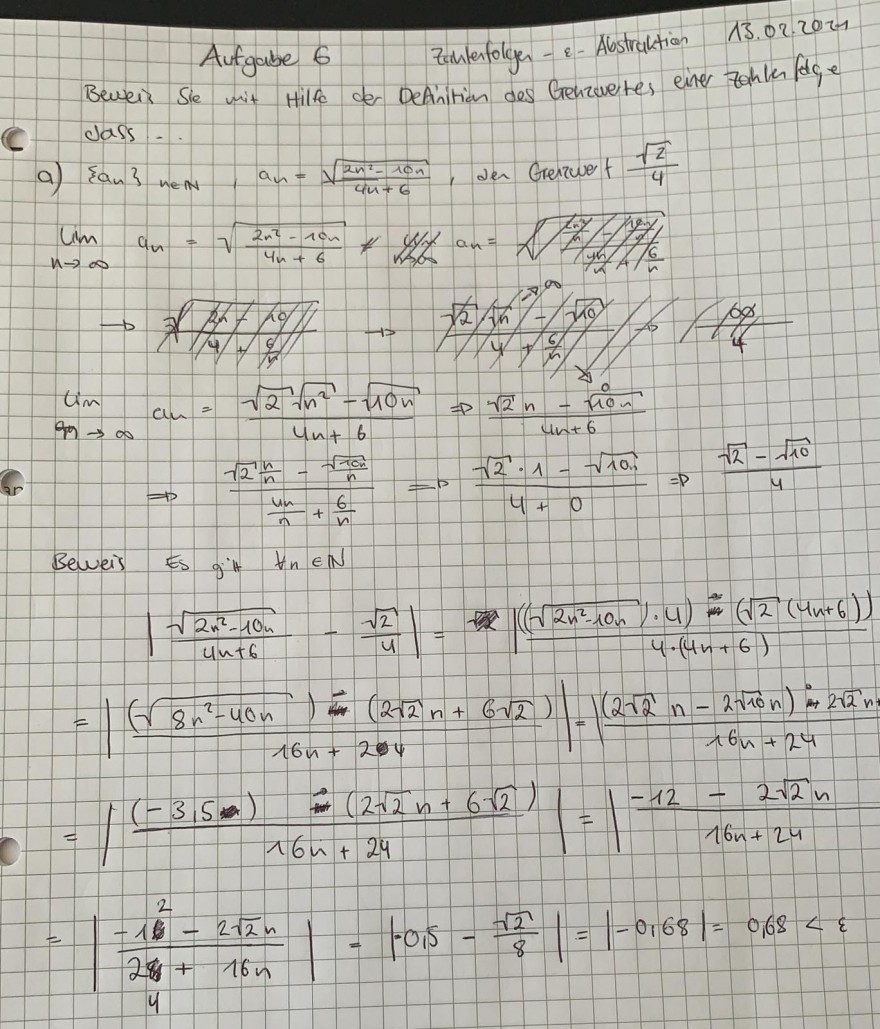 Aufgabe 6 Zahlenfolgen - ε - Abstraktion 13.02.2021
Beweis Sie mit Hilfe der Definition des Grenzwertes einer Zahlenfolge
dass ...
a) {an} n∈ℕ , an = √(2n² - 10n) / (4n + 6) , den Grenzwert √2 / 4
lim n→∞ an = √((2n² - 10n) / (4n + 6)) an =
lim n→∞ an = (√2 √n² - √10n) / (4n + 6) ⇒ (√2 n - √10n) / (4n + 6)
⇒ (√2 n/n - √10n/n) / (4n/n + 6/n) ⇒ (√2 · 1 - √10) / (4 + 0) ⇒ (√2 - √10) / 4
Beweis Es gilt ∀n ∈ ℕ
| √(2n² - 10n) / (4n + 6) - √2 / 4 | = | ((√(2n² - 10n)) · 4) - (√2 (4n + 6)) / 4 · (4n + 6)
= | (√(8n² - 40n)) - (2√2 n + 6√2) / (16n + 24) | = | (2√2 · n - 2√10 n) - 2√2 n + / (16n + 24)
= | (-3,5) - (2√2 n + 6√2) / (16n + 24) | = | (-12 - 2√2 n) / (16n + 24)
= | (-12 - 2√2 n) / (24 + 16n) | = | -0,5 - √2 / 8 | = | -0,68 | = 0,68 < ε